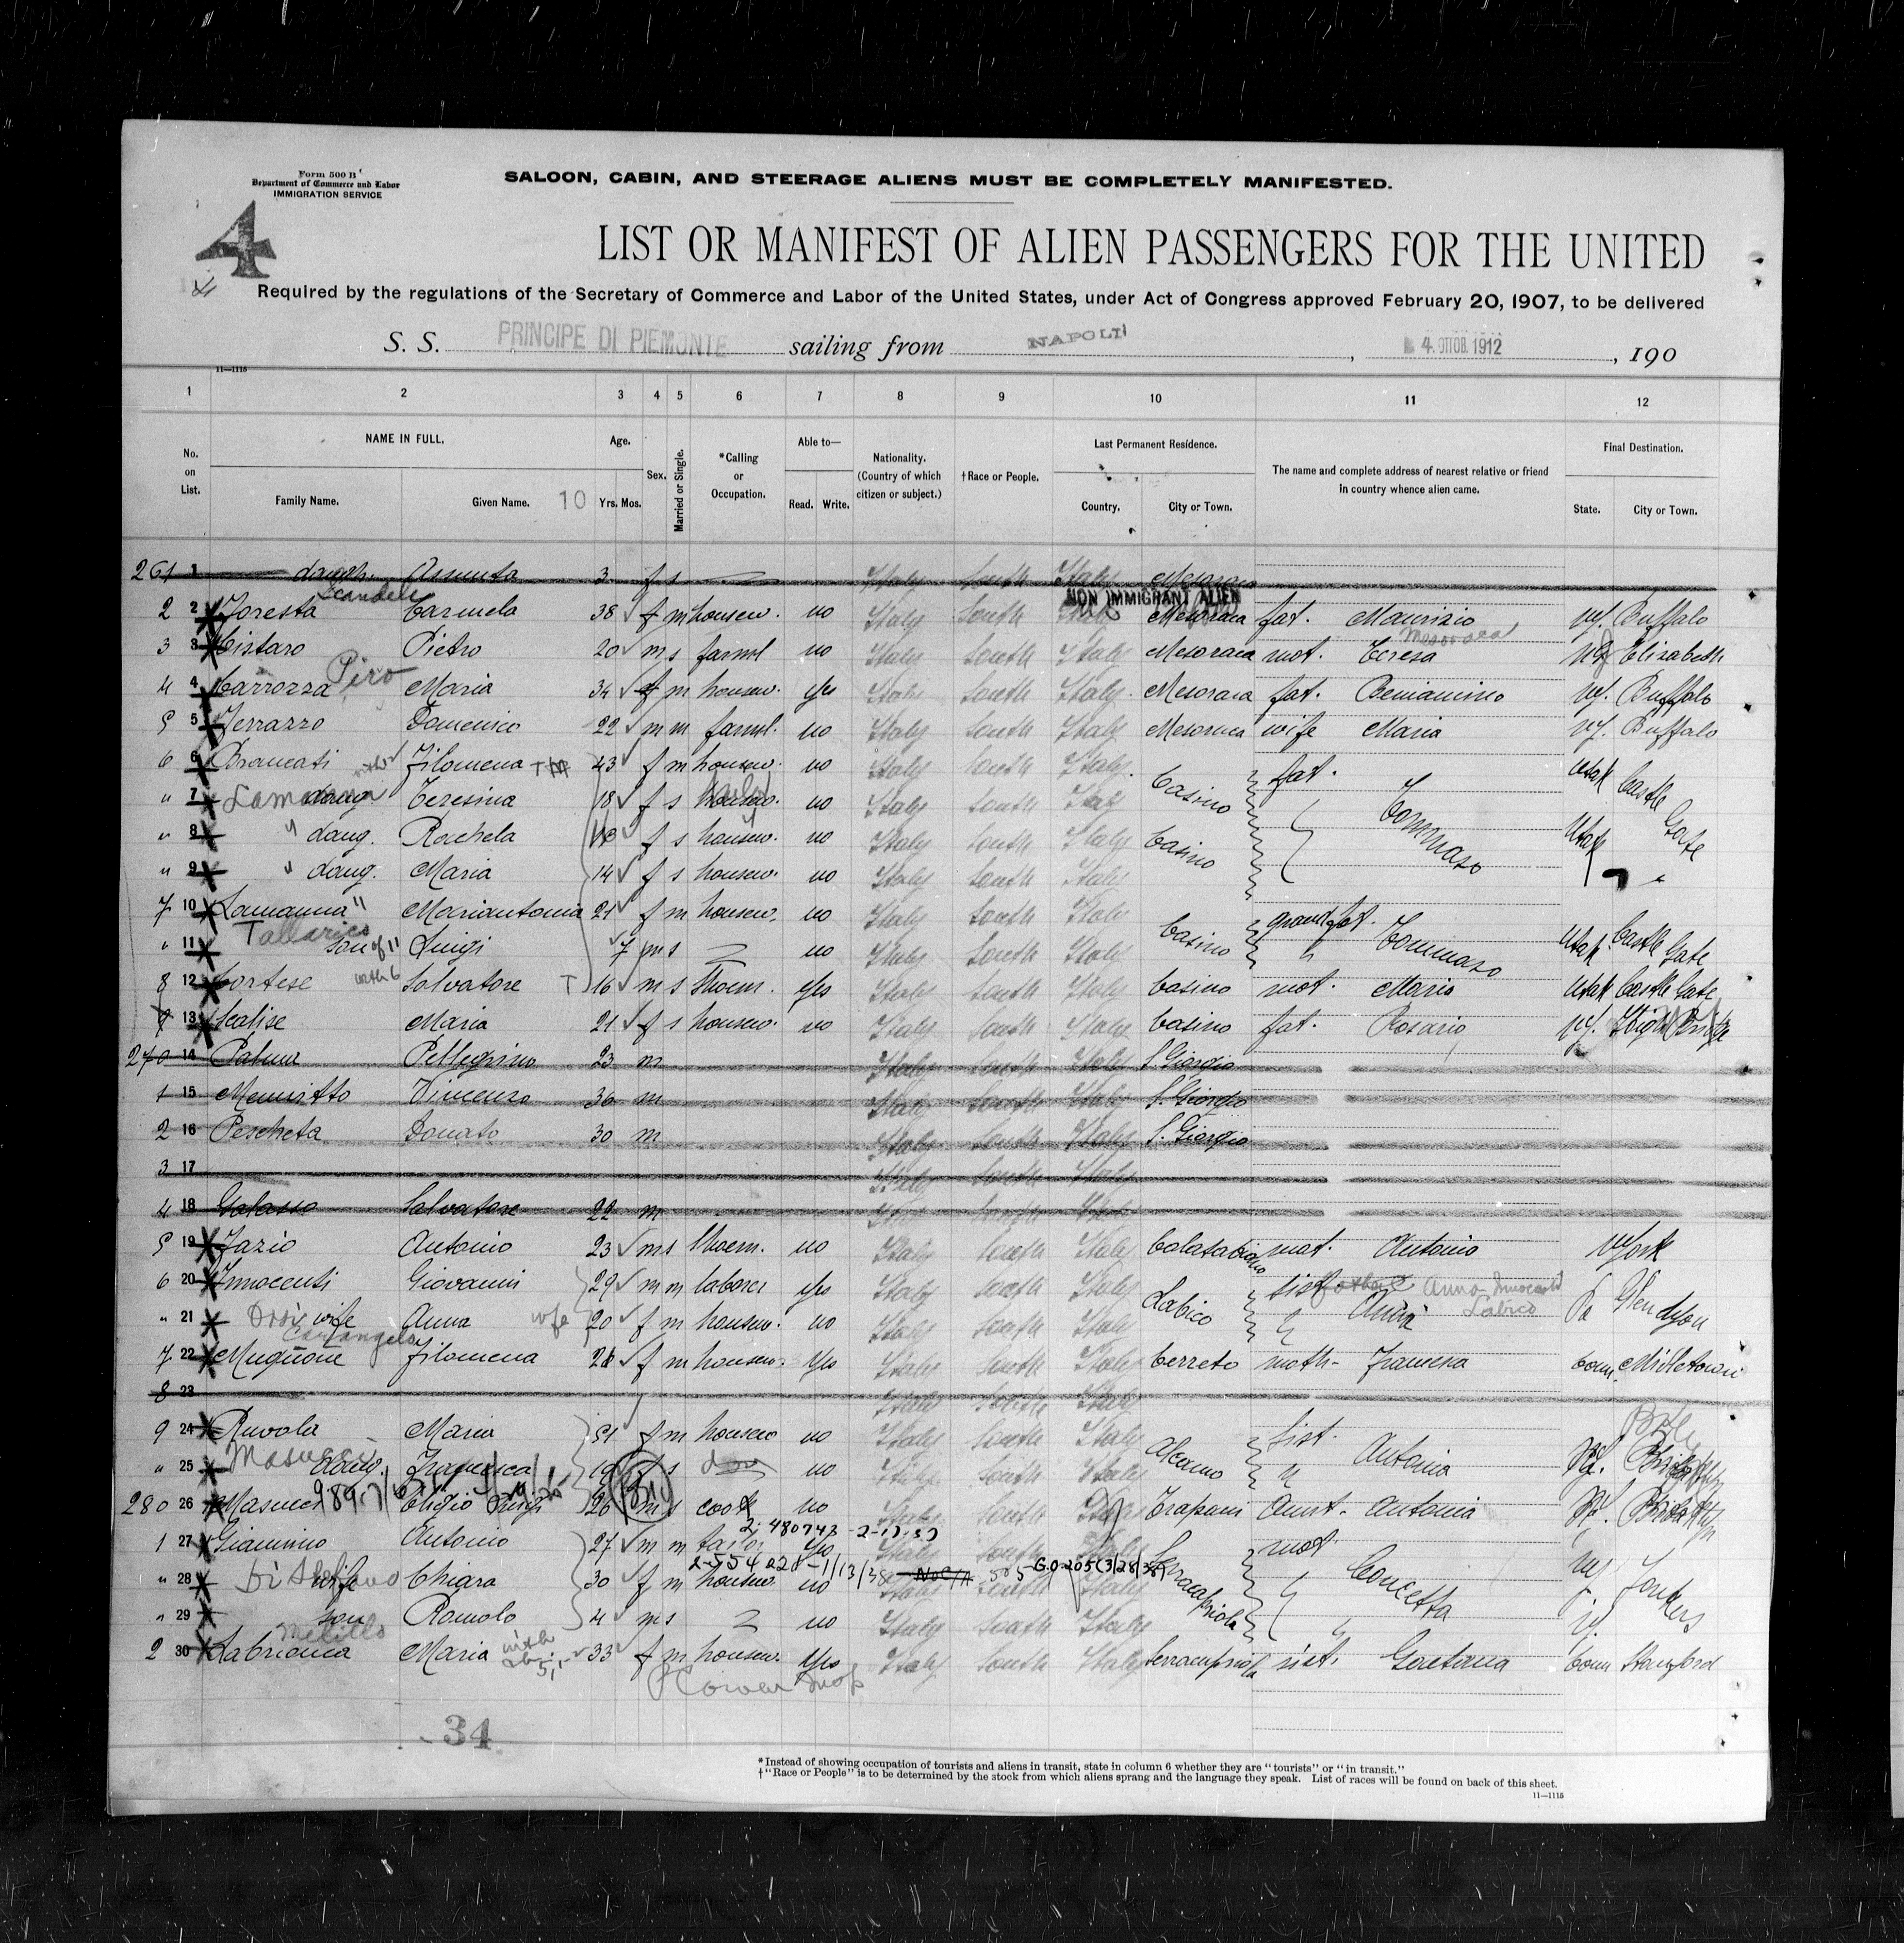 Form 500 B
Department of Commerce and Labor
IMMIGRATION SERVICE
4
SALOON, CABIN, AND STEERAGE ALIENS MUST BE COMPLETELY MANIFESTED.
LIST OR MANIFEST OF ALIEN PASSENGERS FOR THE UNITED
Required by the regulations of the Secretary of Commerce and Labor of the United States, under Act of Congress approved February 20, 1907, to be delivered
S. S. PRINCIPE DI PIEMONTE sailing from NAPOLI, 4. OTTOB. 1912, 190
11—1115
1 2 3 4 5 6 7 8 9 10 11 12
No. on List.
NAME IN FULL.
Family Name. Given Name. 10
Age.
Yrs. Mos.
Sex.
Married or Single.
*Calling or Occupation.
Able to—
Read. Write.
Nationality. (Country of which citizen or subject.)
†Race or People.
Last Permanent Residence.
Country. City or Town.
The name and complete address of nearest relative or friend in country whence alien came.
Final Destination.
State. City or Town.
261 1 daugh. Assunta 3 f s Italy South Italy Mesoraca
Scandale
NON IMMIGRANT ALIEN
2 2 Foresta Carmela 38 f m housew. no Italy South Italy Mesoraca fat. Maurizio Buffalo
3 3 Cistaro Pietro 20 m s farml no Italy South Italy Mesoraca mot. Teresa Elizabeth
Piro
4 4 Carrozza Maria 34 f m housew. yes Italy South Italy Mesoraca fat. Beniamino Buffalo
5 5 Ferrazzo Domenico 22 m m farml. no Italy South Italy Mesoraca wife Maria Buffalo
6 6 Brancati Filomena 43 f m housew. no Italy South Italy Casino fat. Tommaso Utah Castle Gate
" 7 Lamanna daug. Teresina 18 f s housew. no Italy South Italy
" 8 " daug. Rachela f s housew. no Italy South Italy Casino Utah
" 9 " daug. Maria 14 f s housew. no Italy South Italy
7 10 Lamanna Mariantonia 21 f m housew. no Italy South Italy Casino grandfat. Tommaso Utah Castle Gate
Tallarico
" 11 son of " Luigi 7 m s no Italy South Italy
8 12 Cortese with 6 Salvatore T 16 m s shoem. yes Italy South Italy Casino mot. Maria Utah Castle Gate
9 13 Scalise Maria 21 f s housew. no Italy South Italy Casino fat. Rosario High Bridge
270 14 Pellegrino 23 m Italy South Italy S. Giorgio
1 15 Vincenzo 30 m Italy South Italy S. Giorgio
2 16 Pescheta Donato 30 m Italy South Italy S. Giorgio
3 17 Italy South Italy
4 18 Galasso Salvatore 22 m Italy South Italy
5 19 Fazio Antonio 23 m s shoem. no Italy South Italy Calatabiano Antonio York
6 20 Innocenti Giovanni 29 m m laborer yes Italy South Italy Labico sist. Anna Innocenti Labico Pa
" 21 wife Anna wife 20 f m housew. no Italy South Italy Anna
7 22 Mugnone Filomena f m housew. yes Italy South Italy Cerreto moth- Francesca Conn. Midletown
8 23 Italy South Italy
9 24 Ruvola Maria 51 f m housew no Italy South Italy Alcamo sist. Antonia
Masucci
" 25 daug. Francesca s no Italy South Italy
280 26 Masucci Eligio Luigi 26 m s cook no Italy South Italy Trapani aunt- Antonia
2-480742 -2-17-37
1 27 Giannino Antonio 27 m m tailor yes Italy South Italy Serracapriola mot. Concetta Yonkers
2-554028-1/13/38 505-G.O-205(3/28/38)
" 28 wife Chiara 30 f m housew. no Italy South Italy
" 29 son Romolo 4 m s no Italy South Italy
Melillo
2 30 Labrianca Maria 33 f m housew. yes Italy South Italy Serracapriola sist. Gaetana Conn Stamford
34
*Instead of showing occupation of tourists and aliens in transit, state in column 6 whether they are "tourists" or "in transit."
†"Race or People" is to be determined by the stock from which aliens sprang and the language they speak. List of races will be found on back of this sheet.
11—1115